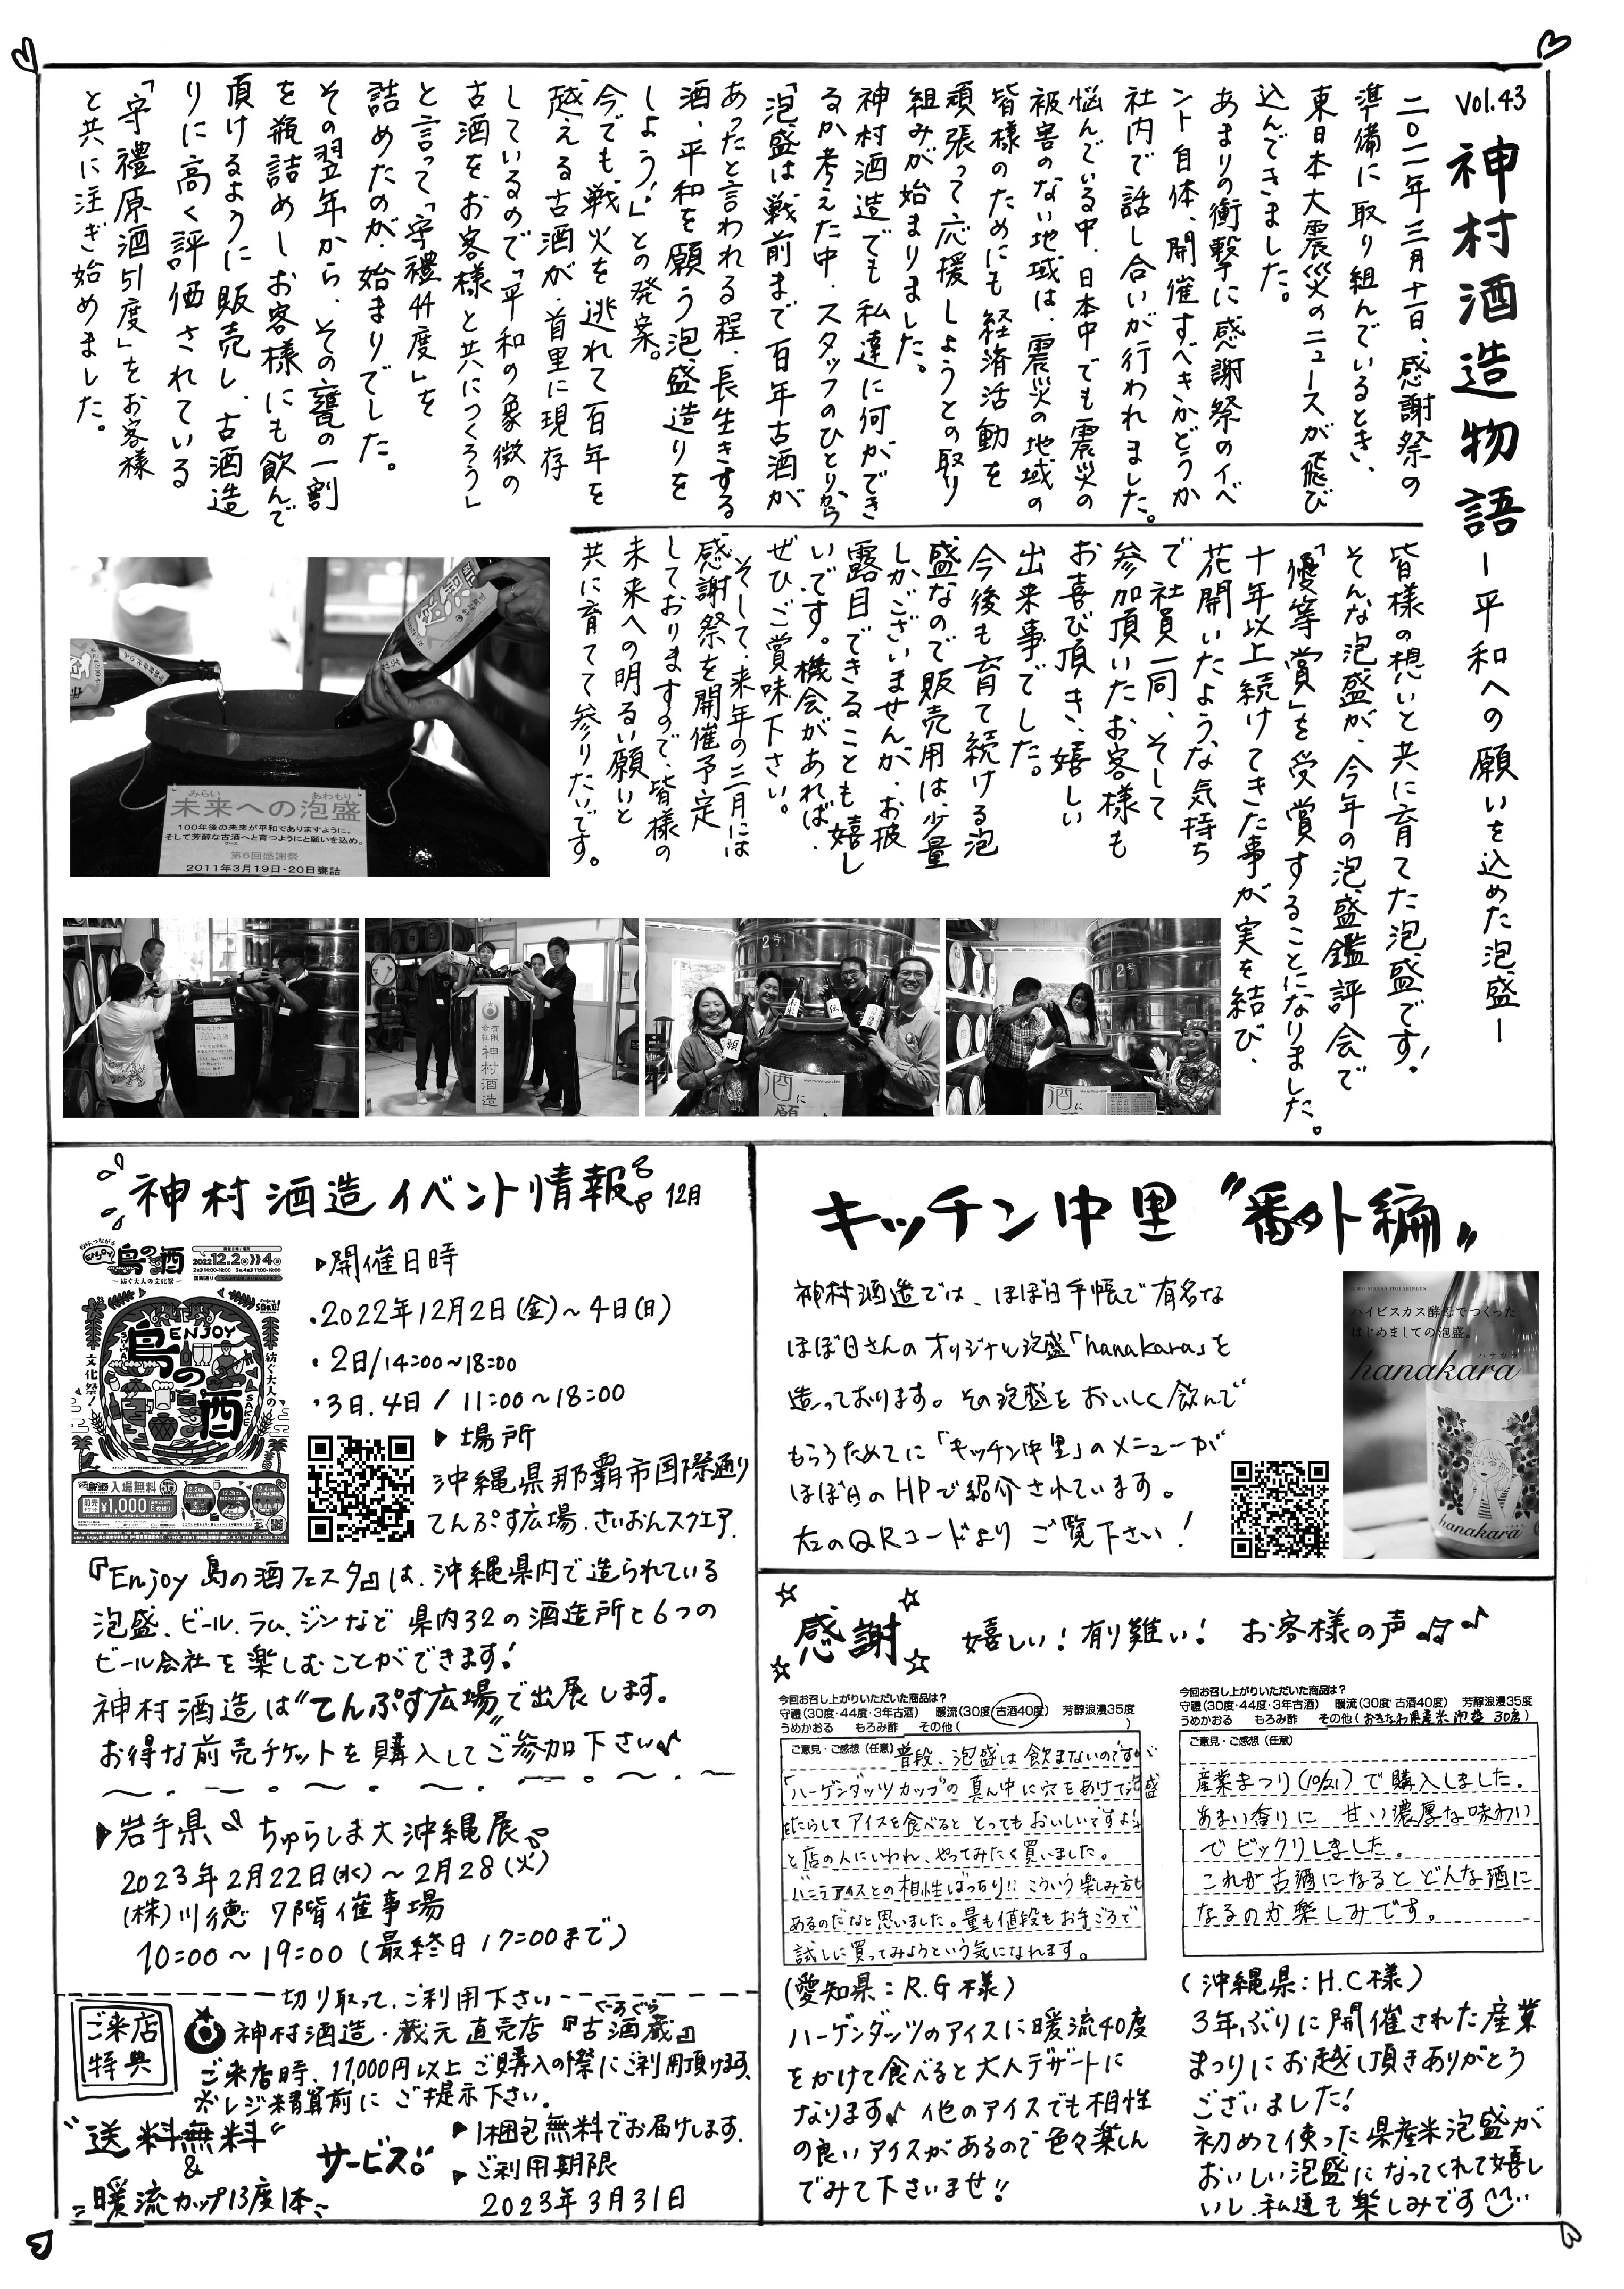 Vol.43 神村酒造物語 ー平和への願いを込めた泡盛ー
二〇一一年三月十一日、感謝祭の
準備に取り組んでいるとき、
東日本大震災のニュースが飛び
込んできました。
あまりの衝撃に感謝祭のイベ
ント自体、開催すべきかどうか
社内で話し合いが行われました。
悩んでいる中、日本中でも震災の
被害のない地域は、震災の地域の
皆様のためにも経済活動を
頑張って応援しようとの取り
組みが始まりました。
神村酒造でも私達に何ができ
るか考えた中、スタッフのひとりから
「泡盛は戦前まで百年古酒が
あったと言われる程、長生きする
酒、平和を願う泡盛造りを
しよう!」との発案。
今でも、戦火を逃れて百年を
越える古酒が、首里に現存
しているので「平和の象徴の
古酒をお客様と共につくろう」
と言って「守禮44度」を
詰めたのが、始まりでした。
その翌年から、その甕の一割
を瓶詰めしお客様にも飲んで
頂けるように販売し、古酒造
りに高く評価されている
「守禮原酒51度」をお客様
と共に注ぎ始めました。
皆様の想いと共に育てた泡盛です!
そんな泡盛が、今年の泡盛鑑評会で
「優等賞」を受賞することになりました。
十年以上続けてきた事が実を結び、
花開いたような気持ち
で社員一同、そして
参加頂いたお客様も
お喜び頂き、嬉しい
出来事でした。
今後も育て続ける泡
盛なので販売用は少量
しかございませんが、お披
露目できることも嬉し
いです。機会があれば、
ぜひご賞味下さい。
そして、来年の三月には
感謝祭を開催予定
しておりますので、皆様の
未来への明るい願いと
共に育てて参りたいです。
みらい あわもり
未来への泡盛
100年後の未来が平和でありますように。
そして芳醇な古酒へと育つようにと願いを込め。
第6回感謝祭
2011年3月19日・20日甕詰
有限会社 神村酒造
2号
願
伝
酒に願
2号
酒に
神村酒造イベント情報 12月
ENJOY 島の酒
〜紡ぐ大人の文化祭〜
2022 12.2 4
ENJOY
島の酒
SHIMA
SAKE
紡ぐ大人の
文化祭!
入場無料
前売 ¥1,000
▶開催日時
・2022年12月2日(金)〜4日(日)
・2日/14:00〜18:00
・3日.4日/11:00〜18:00
▶場所
沖縄県那覇市国際通り
てんぷす広場.さいおんスクエア.
『Enjoy 島の酒フェスタ』は、沖縄県内で造られている
泡盛、ビール、ラム、ジンなど 県内32の酒造所と6つの
ビール会社を楽しむことができます!
神村酒造は"てんぷす広場"で出展します。
お得な前売チケットを購入してご参加下さい♪
▶岩手県 ちゅらしま大沖縄展
2023年2月22日(水)〜2月28(火)
(株)川徳 7階催事場
10:00〜19:00(最終日17:00まで)
切り取って、ご利用下さい
ご来店特典
神村酒造・蔵元直売店『古酒蔵』
くーすぐら
ご来店時、11,000円以上ご購入の際にご利用頂けます。
※レジ精算前にご提示下さい。
"送料無料"
&
暖流カップ13度1本
サービス
▶1梱包無料でお届けします.
▶ご利用期限
2023年3月31日
キッチン中里"番外編"
神村酒造では、ほぼ日手帳で有名な
ほぼ日さんのオリジナル泡盛「hanakara」を
造っております。その泡盛をおいしく飲んで
もらうために「キッチン中里」のメニューが
ほぼ日のHPで紹介されています。
右のQRコードよりご覧下さい!
HOBO NIKKAN ITOI SHINBUN
ハイビスカス酵母でつくった
はじめましての泡盛。
ハナカラ
hanakara
hanakara
感謝 嬉しい!有り難い! お客様の声♫♪
今回お召し上がりいただいた商品は?
守禮(30度・44度・3年古酒) 暖流(30度 古酒40度) 芳醇浪漫35度
うめかおる もろみ酢 その他( )
ご意見・ご感想(任意) 普段、泡盛は飲まないのですが
「ハーゲンダッツカップ"の真ん中に穴をあけて泡盛
をたらしてアイスを食べると とってもおいしいですよ!」
と店の人にいわれ、やってみたく買いました。
バニラアイスとの相性ばっちり!! こういう楽しみ方も
あるのだなと思いました。量も値段もお手ごろで
試しに買ってみようという気になれます。
(愛知県:R.G様)
ハーゲンダッツのアイスに暖流40度
をかけて食べると大人デザートに
なります♪ 他のアイスでも相性
の良いアイスがあるので色々楽しん
でみて下さいませ!!
今回お召し上がりいただいた商品は?
守禮(30度・44度・3年古酒) 暖流(30度 古酒40度) 芳醇浪漫35度
うめかおる もろみ酢 その他(おきなわ県産米泡盛 30度)
ご意見・ご感想(任意)
産業まつり(10/21)で購入しました。
あまい香りに 甘い濃厚な味わい
でビックリしました。
これが古酒になるとどんな酒に
なるのか楽しみです。
(沖縄県:H.C様)
3年ぶりに開催された産業
まつりにお越し頂きありがとう
ございました!
初めて使った県産米泡盛が
おいしい泡盛になってくれて嬉し
いし、私達も楽しみです